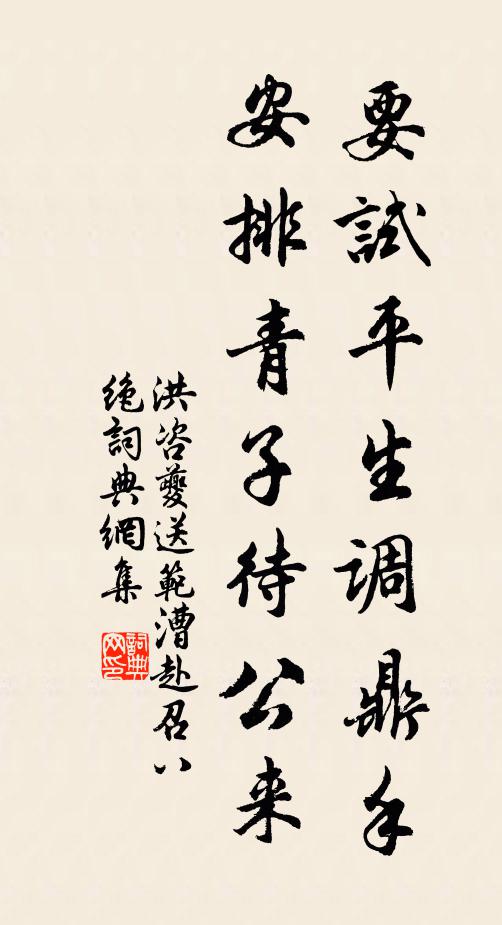 要試平生調鼎手
安排青子待公来
洪咨夔送範漕赴召八
絶詞典網集
詞典網印